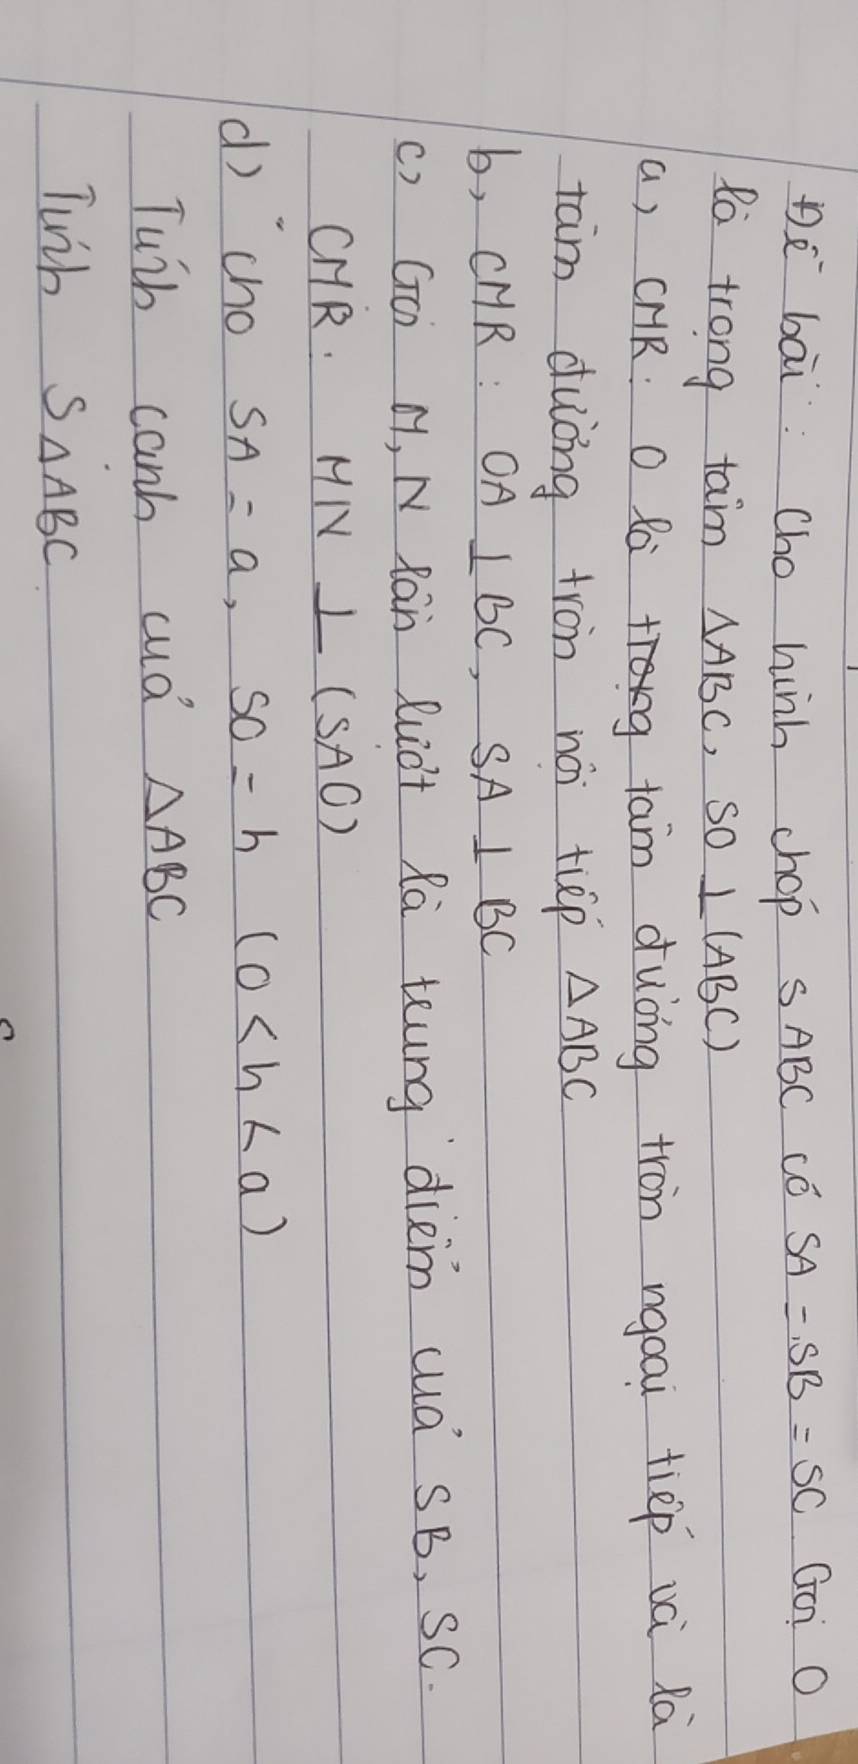 Đề bài: Cho hình chóp SABC có SA = SB = SC. Gọi O
là trọng tâm ΔABC, SO ⊥ (ABC)
a, CMR: O là trọng tâm đường tròn ngoại tiếp và là
tâm đường tròn nội tiếp ΔABC
b, CMR: OA ⊥ BC, SA ⊥ BC
c, Gọi M, N lần lượt là trung điểm của SB, SC.
CMR: MN ⊥ (SAO)
d) Cho SA = a, SO = h (0 < h < a)
Tính cạnh của ΔABC
Tính SΔABC.